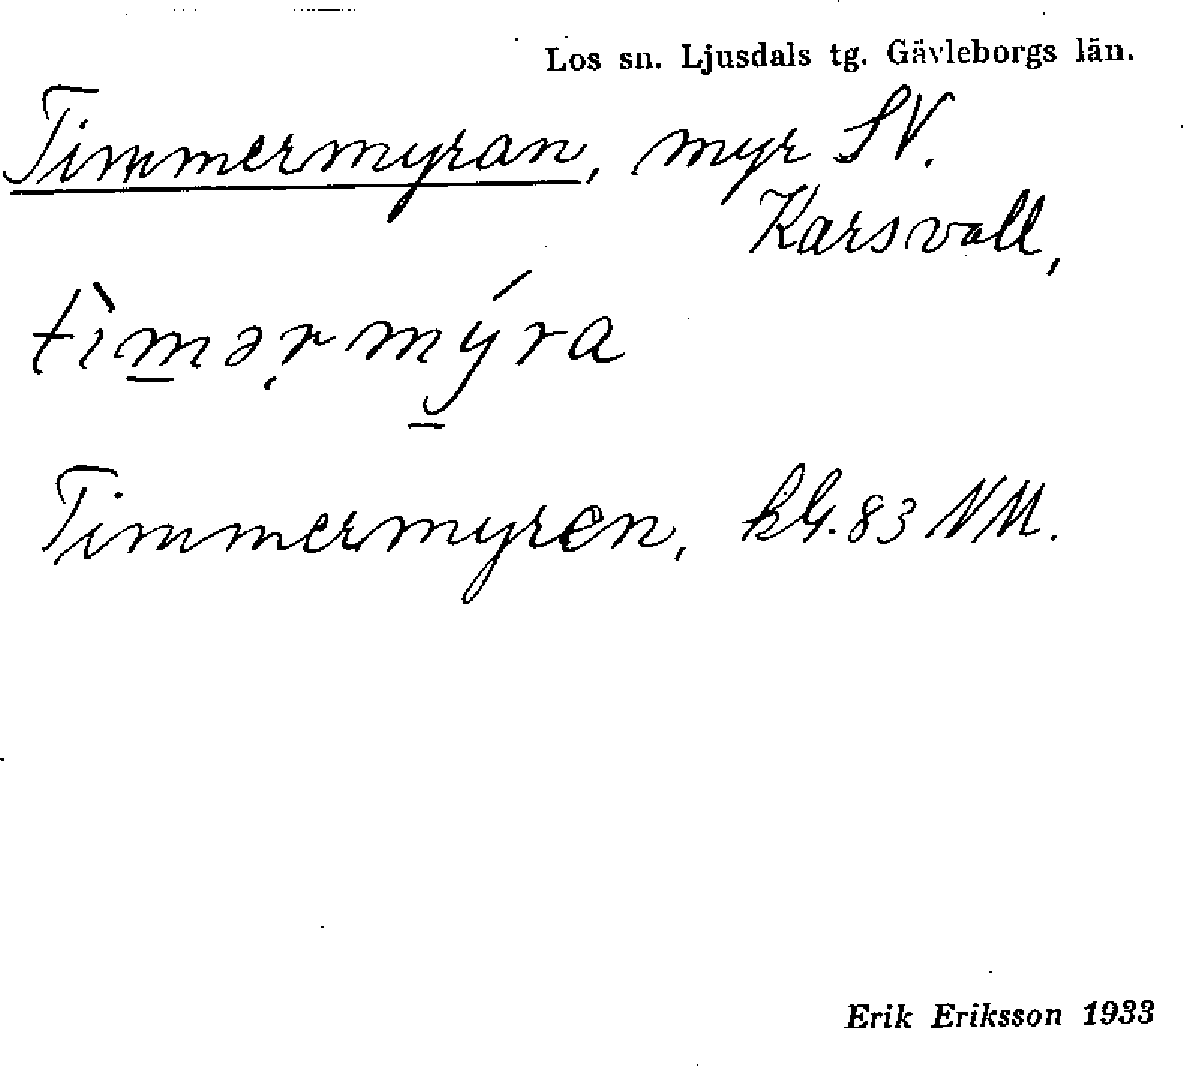 Los sn. Ljusdals tg. Gävleborgs län.
Timmermyran, myr SV.
Karsvall,
tìm̲əṛmýra
Timmermyren, kbl. 83 NM.
Erik Eriksson 1933